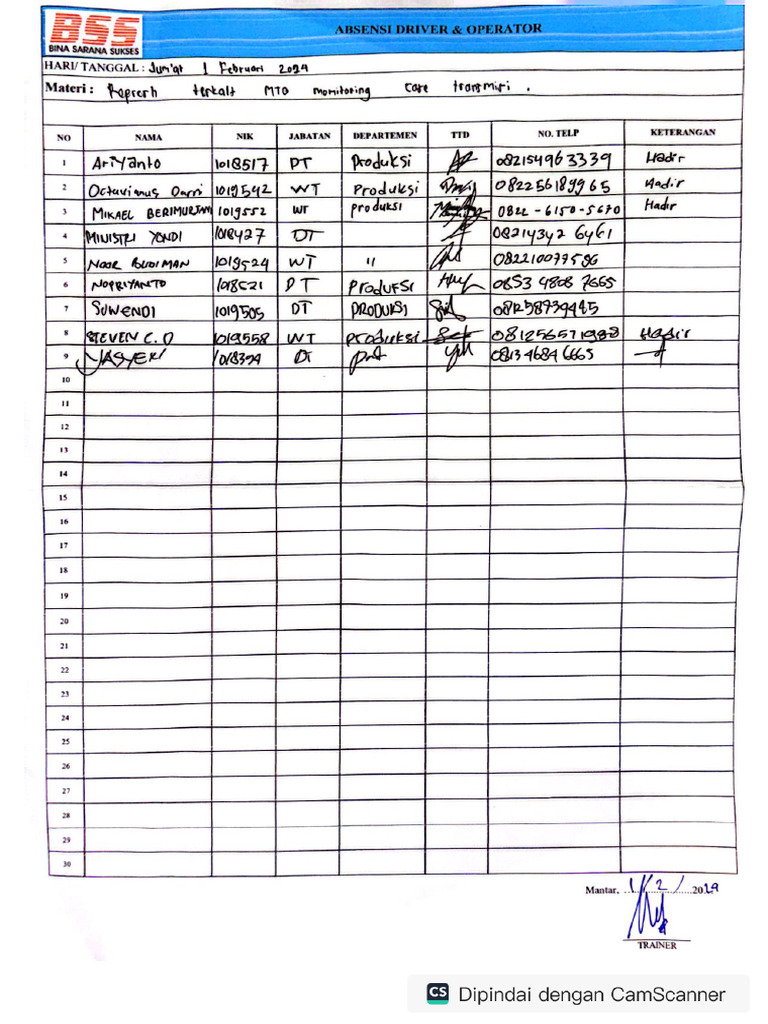 BSS
BINA SARANA SUKSES
ABSENSI DRIVER & OPERATOR
HARI/ TANGGAL : Jum'at 1 Februari 2024
Materi : Reprerh terkait MTO monitoring Care transmiri .
NO NAMA NIK JABATAN DEPARTEMEN TTD NO. TELP KETERANGAN
1 Ariyanto 1018517 DT Produksi 082154963339 Hadir
2 Octavianus Darri 1019542 WT Produksi 082256189965 Hadir
3 MIKAEL 1019552 WT produksi 0822-6150-5670 Hadir
4 MINISTRI YONDI 1018427 DT 08214342 6461
5 NOOR BUDIMAN 1019524 WT " 082210077596
6 NOPRIYANTO 1018521 DT PRODUKSI 0853 4808 7665
7 SUWENDI 1019505 DT PRODUKSI 081258739445
8 STEVEN C.O 1019558 WT produksi Hadir
9 1018394 DT 0813 4684 6665
10
11
12
13
14
15
16
17
18
19
20
21
22
23
24
25
26
27
28
29
30
Mantar, 1 / 2 / 20
TRAINER
CS Dipindai dengan CamScanner